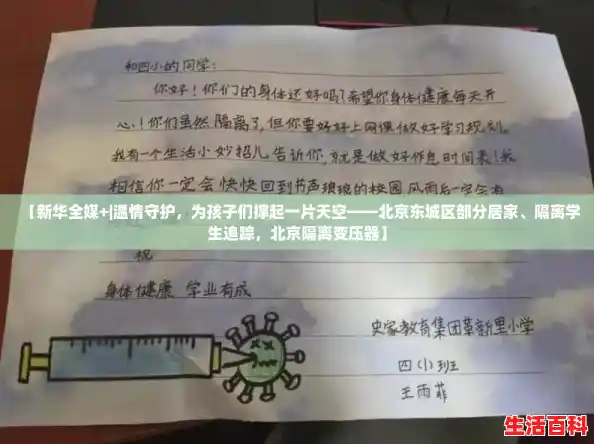 和四小的同学：
你好！你们的身体还好吗？希望你身体健康每天开
心！你们虽然隔离了，但你要好好上网课做好学习规划。
我有一个生活小妙招儿告诉你，就是做好作息时间表！我
相信你一定会快快回到书声琅琅的校园，风雨后一定会有
【新华全媒+|温情守护，为孩子们撑起一片天空——北京东城区部分居家、隔离学
生追踪，北京隔离变压器】
祝
身体健康 学业有成
史家教育集团革新里小学
四（1）班
王雨菲
生活百科